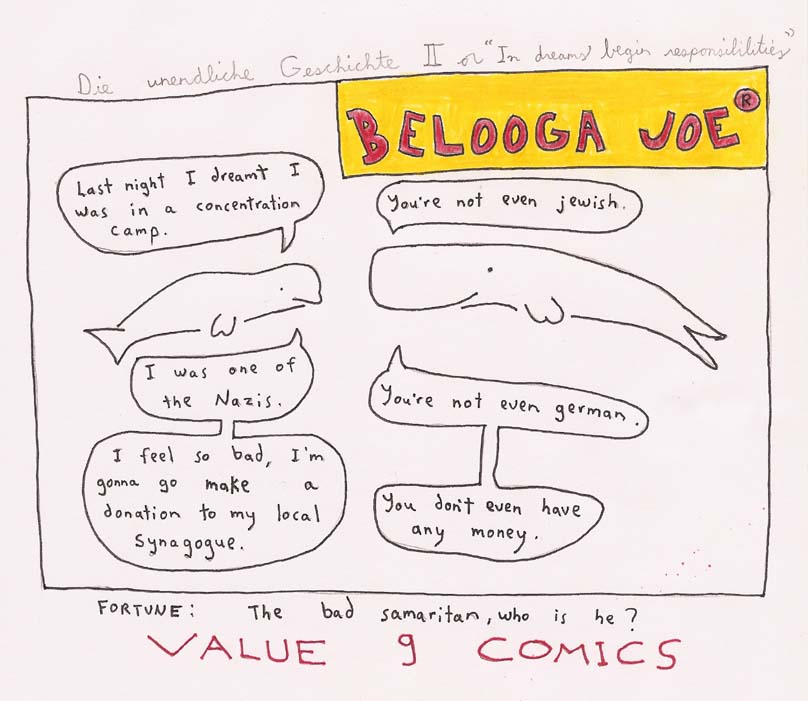 Die unendliche Geschichte II or "In dreams begin responsililities"
BELOOGA JOE®
Last night I dreamt I
was in a concentration
camp.
You're not even jewish.
I was one of
the Nazis.
You're not even german.
I feel so bad, I'm
gonna go make a
donation to my local
Synagogue.
You don't even have
any money.
FORTUNE: The bad samaritan, who is he?
VALUE 9 COMICS